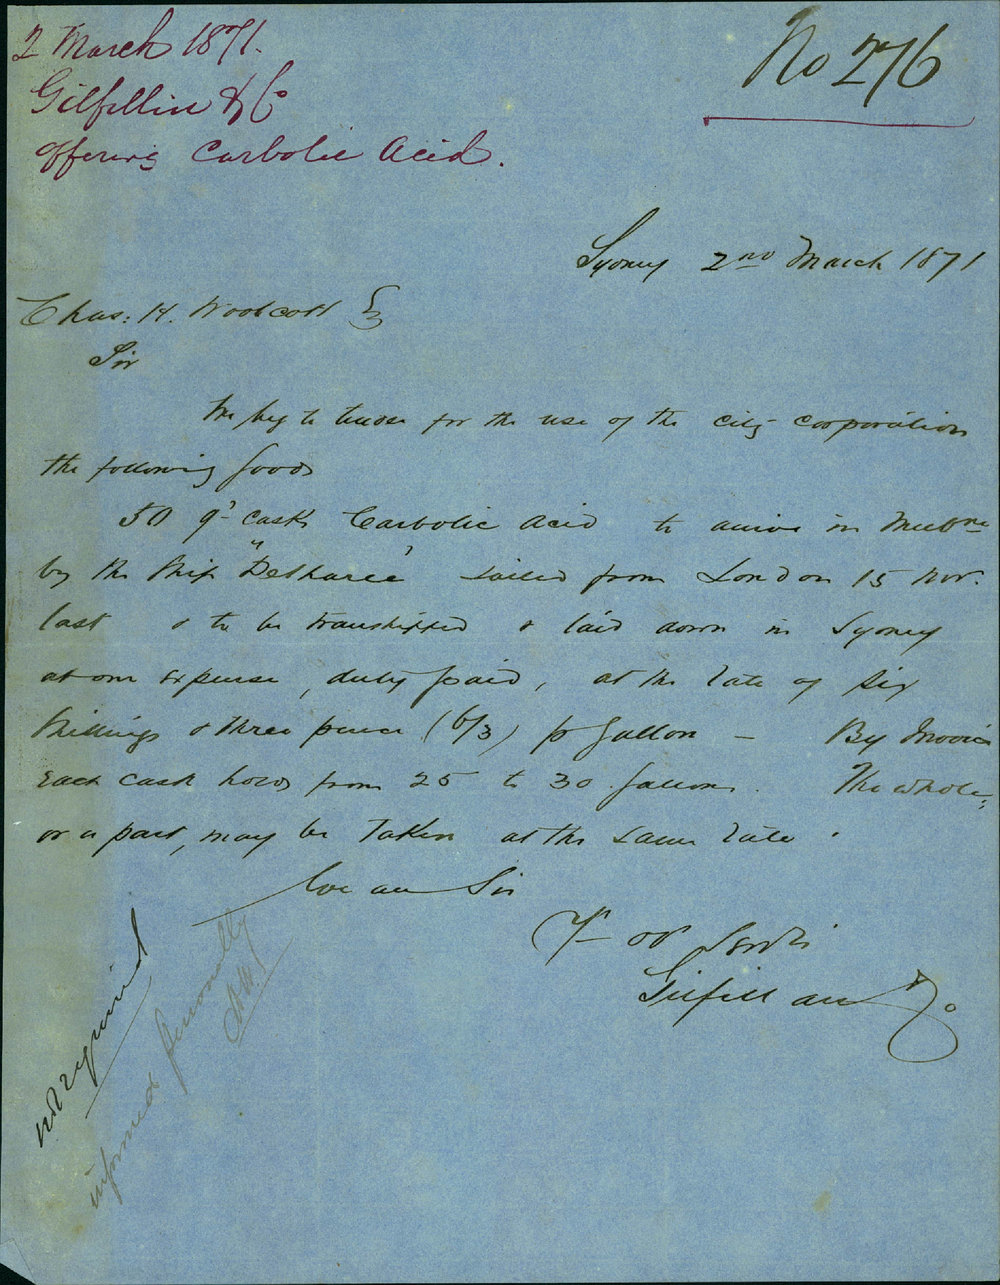 2 March 1871.
Gilfillin & Co
offering Carbolic Acid.
No 276
Sydney 2nd March 1871
Chas: H. Woolcott
Sir
We beg to tender for the use of the city corporation
the following goods
50 qr casks Carbolic Acid to arrive in Melbne
by the ship " " sailed from London 15 Nov.
last & to be transhipped & laid down in Sydney
at our expense, duty paid, at the rate of six
shillings & three pence (6/3) pr gallon — By Invoice
each cask holds from 25 to 30 gallons. The whole,
or a part, may be taken at the same rate.
We are Sir
Yr Servts
Gilfillan & Co.
not required
informed personally